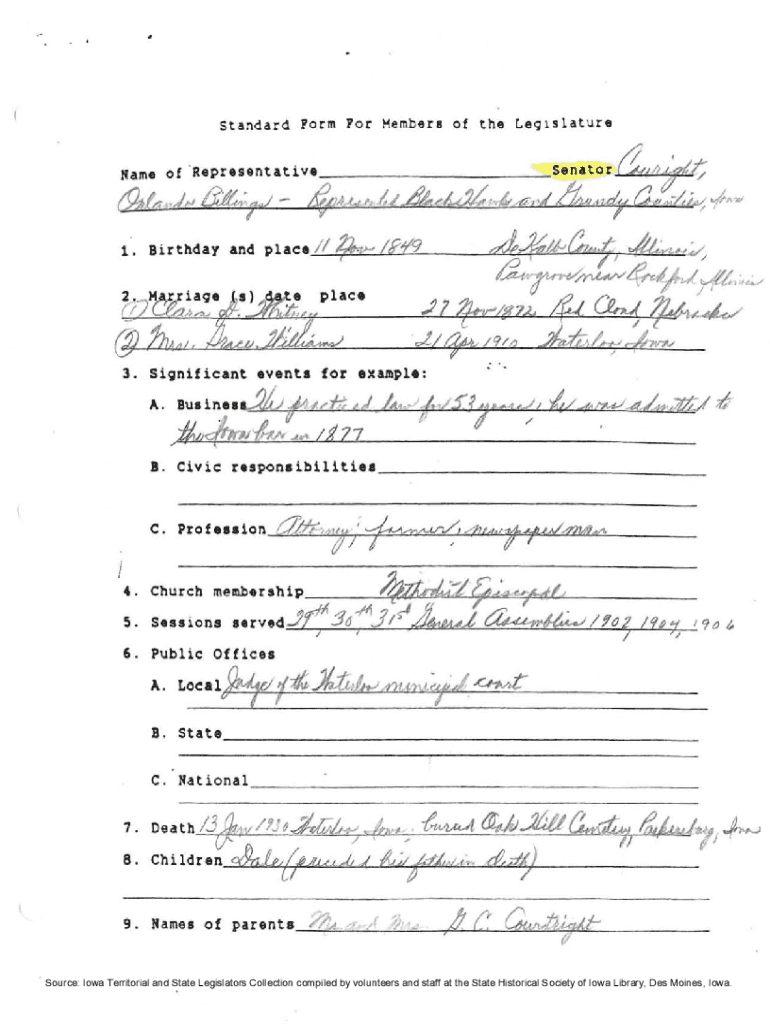 Standard Form For Members of the Legislature
Name of Representative Senator Couright,
Orlando Billings - Represented Black Hawk and Grundy Counties, Iowa
1. Birthday and place 11 Nov 1849 DeKalb County, Illinois,
Pawgrove near Rockford, Illinois
2. Marriage (s) date place
(1) Clara A. Whitney 27 Nov 1872 Red Cloud, Nebraska
(2) Mrs. Grace Williams 21 Apr 1910 Waterloo, Iowa
3. Significant events for example:
A. Business He practiced law for 53 years; he was admitted to
the Iowa bar in 1877
B. Civic responsibilities
C. Profession Attorney; farmer; newspaper man
4. Church membership Methodist Episcopal
5. Sessions served 29th, 30th, 31st General Assemblies 1902, 1904, 1906
6. Public Offices
A. Local Judge of the Waterloo municipal court
B. State
C. National
7. Death 13 Jan 1930 Waterloo, Iowa; buried Oak Hill Cemetery, Parkersburg, Iowa
8. Children Dale (preceded his father in death)
9. Names of parents Mr. and Mrs. G. C. Courtright
Source: Iowa Territorial and State Legislators Collection compiled by volunteers and staff at the State Historical Society of Iowa Library, Des Moines, Iowa.